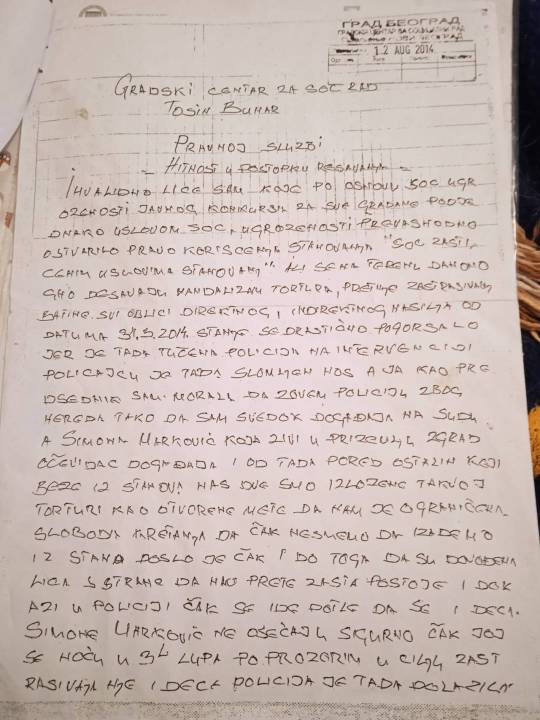 ГРАД БЕОГРАД
12 AUG 2014
GRADSKI CENTAR ZA SOC RAD
TOSIN BUNAR
PRAVNOJ SLUZBI
- HITNOST U POSTUPKU RESAVANJA -
INVALIDNO LICE SAM KOJE PO OSNOVU SOC UGR
OZENOSTI JAVNOG KONKURSA ZA SVE GRAĐANE PODJE
DNAKO USLOVOM SOC. UGROZENOSTI PREVASHODNO
OSTVARILO PRAVO KORISCENJA STANOVANJA "SOC ZASTI
CENIM USLOVIMA STANOVANJ". ALI SE NA TERENU DANONO
ĆNO DESAVAJU VANDALIZAM TORTURA, PRETNJE ZASTRASIVANJ
BATINE SVI OBLICI DIREKTNOG, INDIREKTNOG NASILJA OD
DATUMA 31.5.2014. STANJE SE DRASTIČNO POGORSALO
JER JE TADA TUČENA POLICIJA NA INTERVENCIJI
POLICAJCU JE TADA SLOMLJEN NOS A JA KAO PRE
DSEDNIK SAM MORALA DA ZOVEM POLICIJU ZBOG
NEREDA TAKO DA SAM SVEDOK DOGAĐAJA NA SUDU
A SIMONA MARKOVIĆ KOJA ZIVI U PRIZEMLJU ZGRAD
OČEVIDAC DOGAĐAJA I OD TADA PORED OSTALIH KOJI
BEZE IZ STANOVA NAS DVE SMO IZLOZENE TAKVOJ
TORTURI KAO OTVORENE METE DA NAM JE OGRANIČENA
SLOBODA KRETANJA DA ČAK NESMEMO DA IZAĐEMO
IZ STANA DOSLO JE ČAK I DO TOGA DA SU DOVOĐENA
LICA S STRANE DA NAS PRETE ZASTA POSTOJE I DOK
AZI U POLICIJI ČAK SE IDE DOTLE DA SE I DECA
SIMONE MARKOVIĆ NE OSEĆAJU SIGURNO ČAK JOJ
SE NOĆU U 3h LUPA PO PROZORIMA U CILJU ZAST
RASIVANJA NJE I DECE POLICIJA JE TADA DOLAZILA